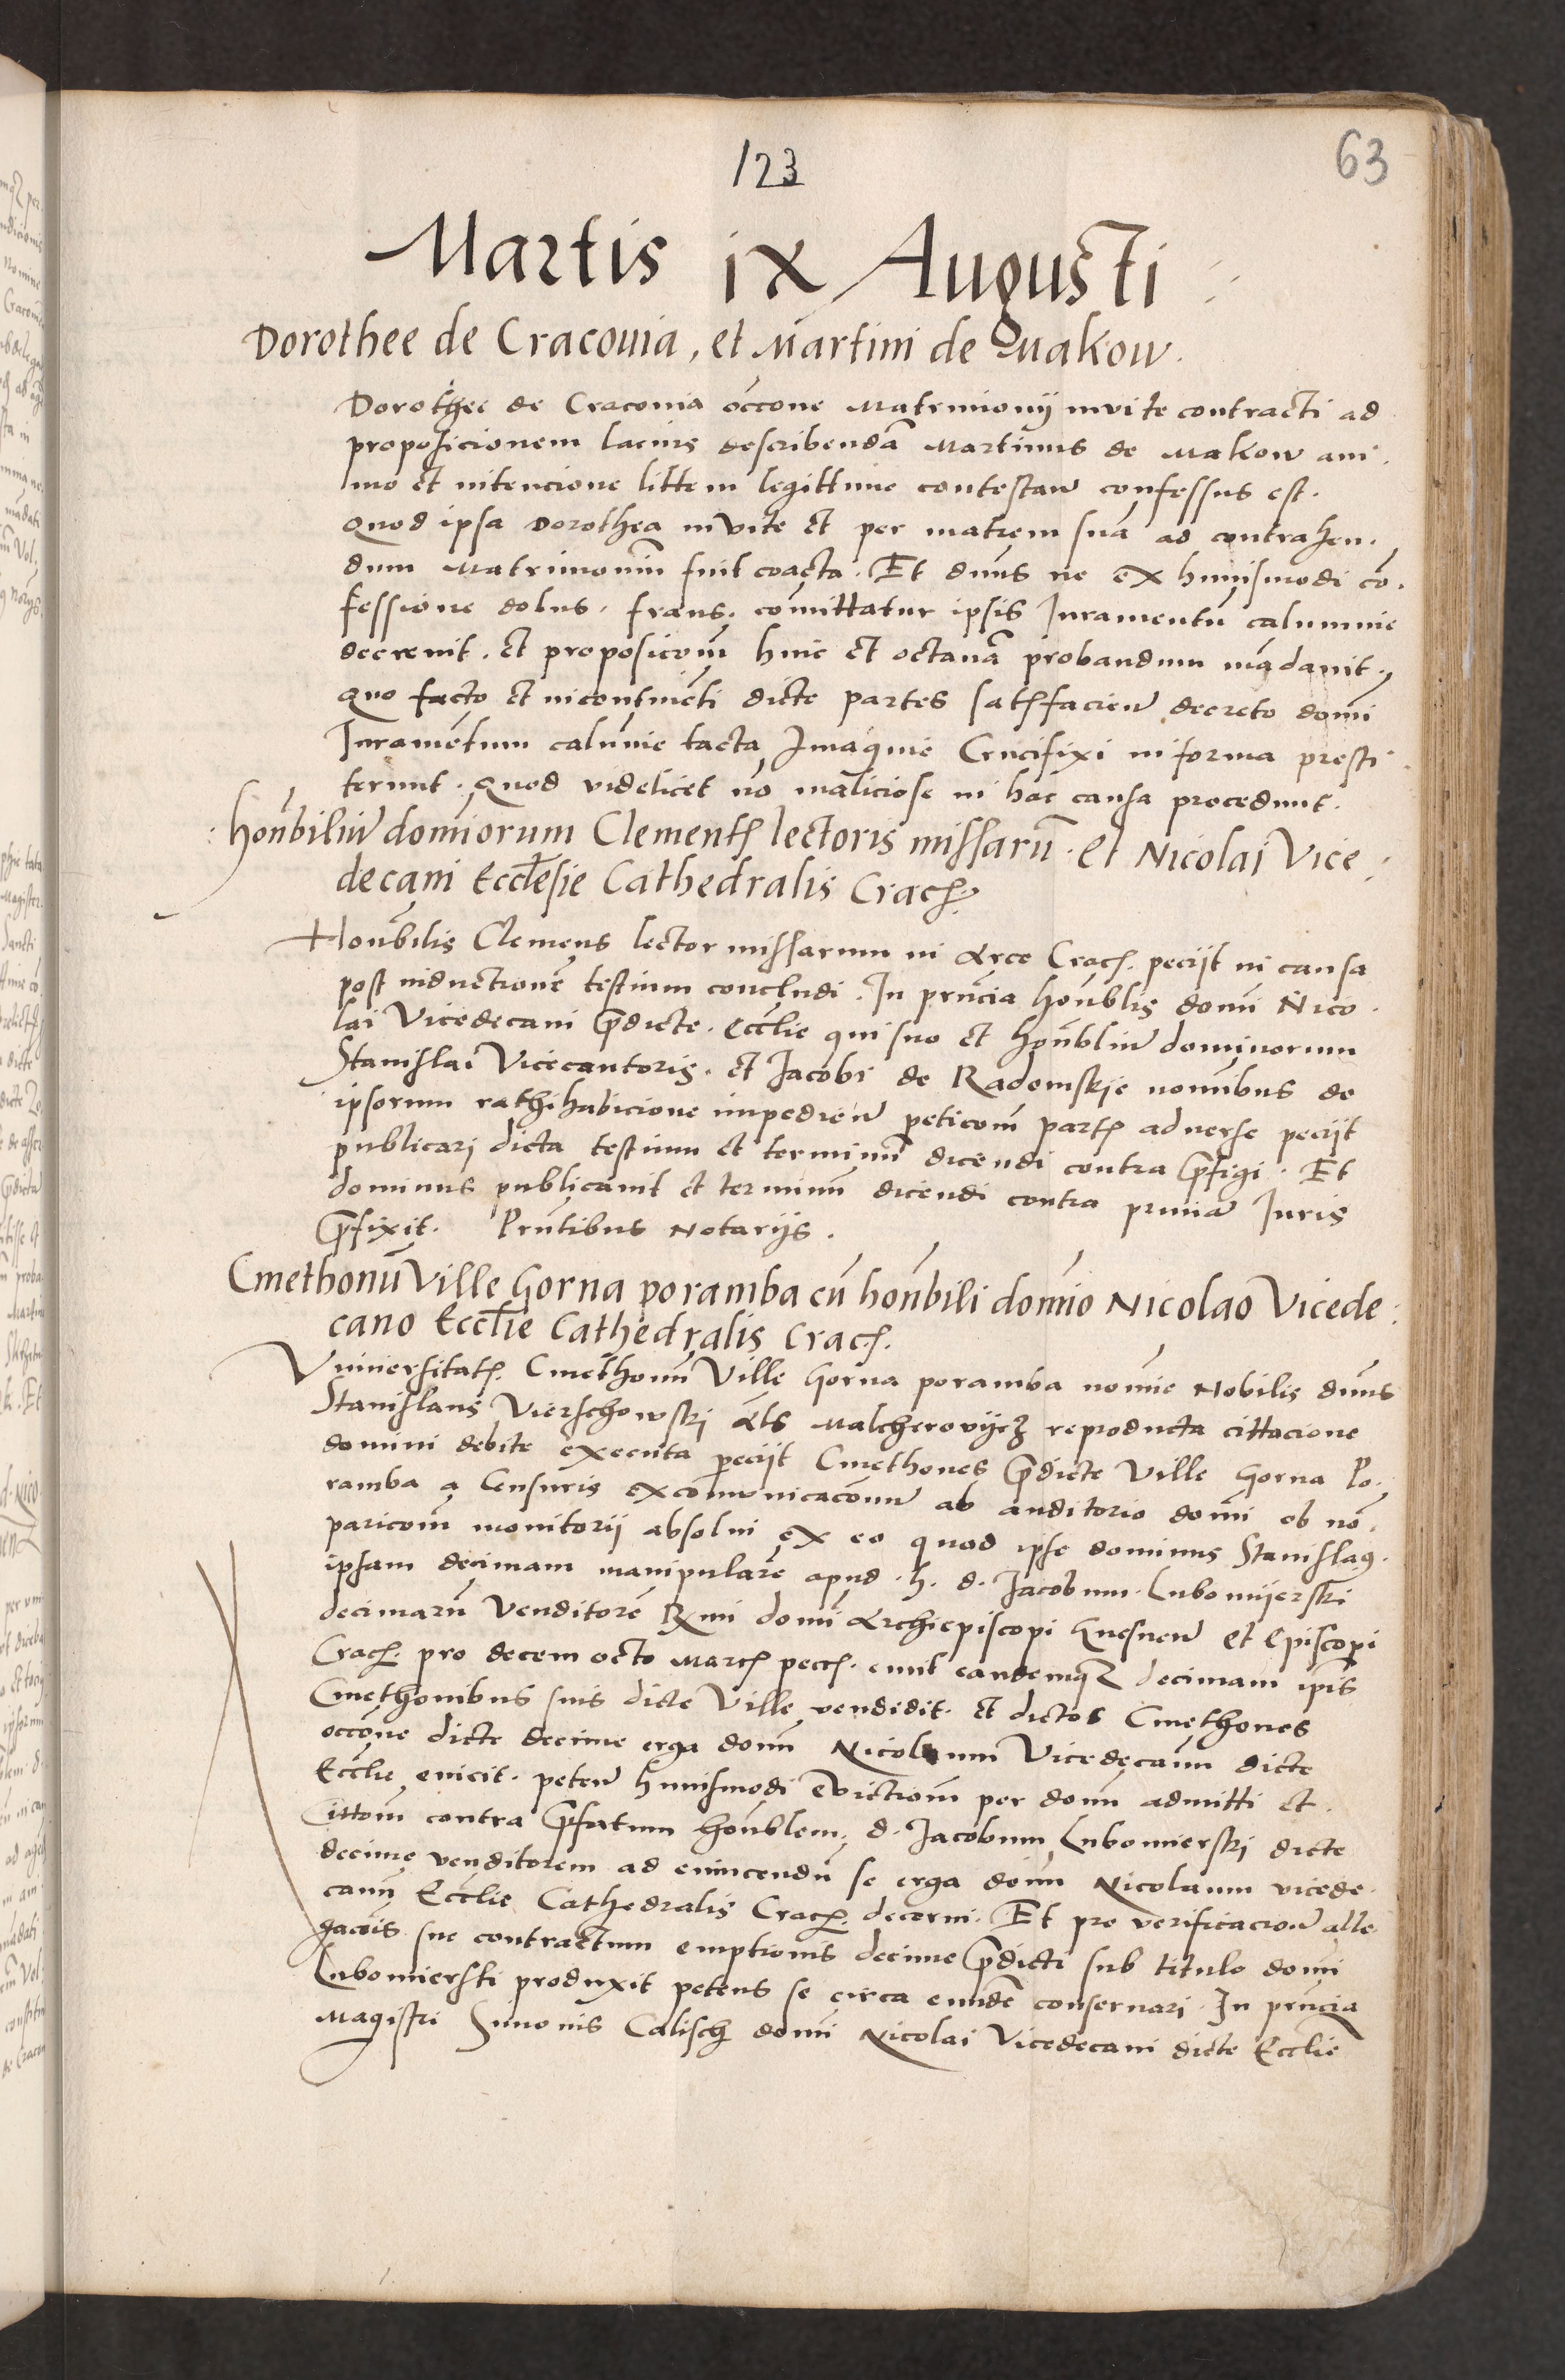 123
63
Martis ix Augusti
Dorothee de Cracouia, et Martini de Makow.
Dorothee de Cracouia occone Matrimonij inuite contracti ad
proposicionem lacius describendā Martinus de Makow ani
mo et intencione littem legittime contestan confessus est.
Quod ipsa Dorothea inuite et per matrem suā ad contrahen
dum Matrimoniū fuit coacta. Et dnūs ne ex huiusmodi cō
fessione dolus, fraus, comittatur ipsis Iuramentū calumnie
decreuit. et proposicom̄ hinc et octauā probandum mādauit.
Quo facto et incontinēti dicte partes satisfacien decreto domi
Iuramentum calūnie tacta Imagine Crucifixi in forma presti
terunt. Quod videlicet nō maliciose in hac causa procedunt.
honbiliū domiorum Clement lectoris missarū et Nicolai Vice
decani Ecclesie Cathedralis Crac.
Honbilis Clemens lector missarum in Arce Crac. peciit in causa
post inductionē testium concludi. In prncia honblis domi Nico
lai Vicedecani predicte Ecclie qui suo et honbliū dominorum
Stanislai Vicecantoris. et Jacobi de Radomskie nomibus de
ipsorum rathihabicione impedien peticom̄ part aduerse peciit
publicari dicta testium et terminū dicendi contra prefigi. Et
dominus publicauit et terminū dicendi contra primā Iuris
prefixit. Prntibus Notarijs.
Cmethonū Ville Gorna poramba cū honbili domio Nicolao Vicede
cano Ecclie Cathedralis Crac.
Vniuersitat Cmethonū Ville Gorna poramba nomie Nobilis dnūs
Stanislaus Vierschowski als Malcherovijcz reproducta cittacione
domini debite executa peciit Cmethones predicte Ville Gorna Po
ramba a Censuris excomunicaconū ab auditorio domi ob nō
paricom̄ monitorii absolui ex eo quod ipse dominus Stanislaus
ipsam decimam manipularē apud. h. d. Jacobum Lubomijerski
decimarū Venditorē Rmi domi Archiepiscopi Gnesnen et Episcopi
Crac. pro decem octo Marc pecc. emit eandemq decimam ipīs
Cmethonibus suis dicte Ville vendidit. et dictos Cmethones
occone dicte decime erga domū Nicolaum Vicedecanū dicte
Ecclie euicit. peten huiusmodi euictionē per domū admitti et
Cittom̄ contra prefatum honblem d. Jacobum Lubomierski dicte
decime venditorem ad euincendū se erga domū Nicolaum vicede
canū Ecclie Cathedralis Crac. decerni. Et pro verificacion alle
gacois sue contractum emptionis decime predicti sub titulo domi
Lubomierski produxit petens se circa eundē conseruari. In prncia
Magistri Simonis Calisch domi Nicolai Vicedecani dicte Ecclie